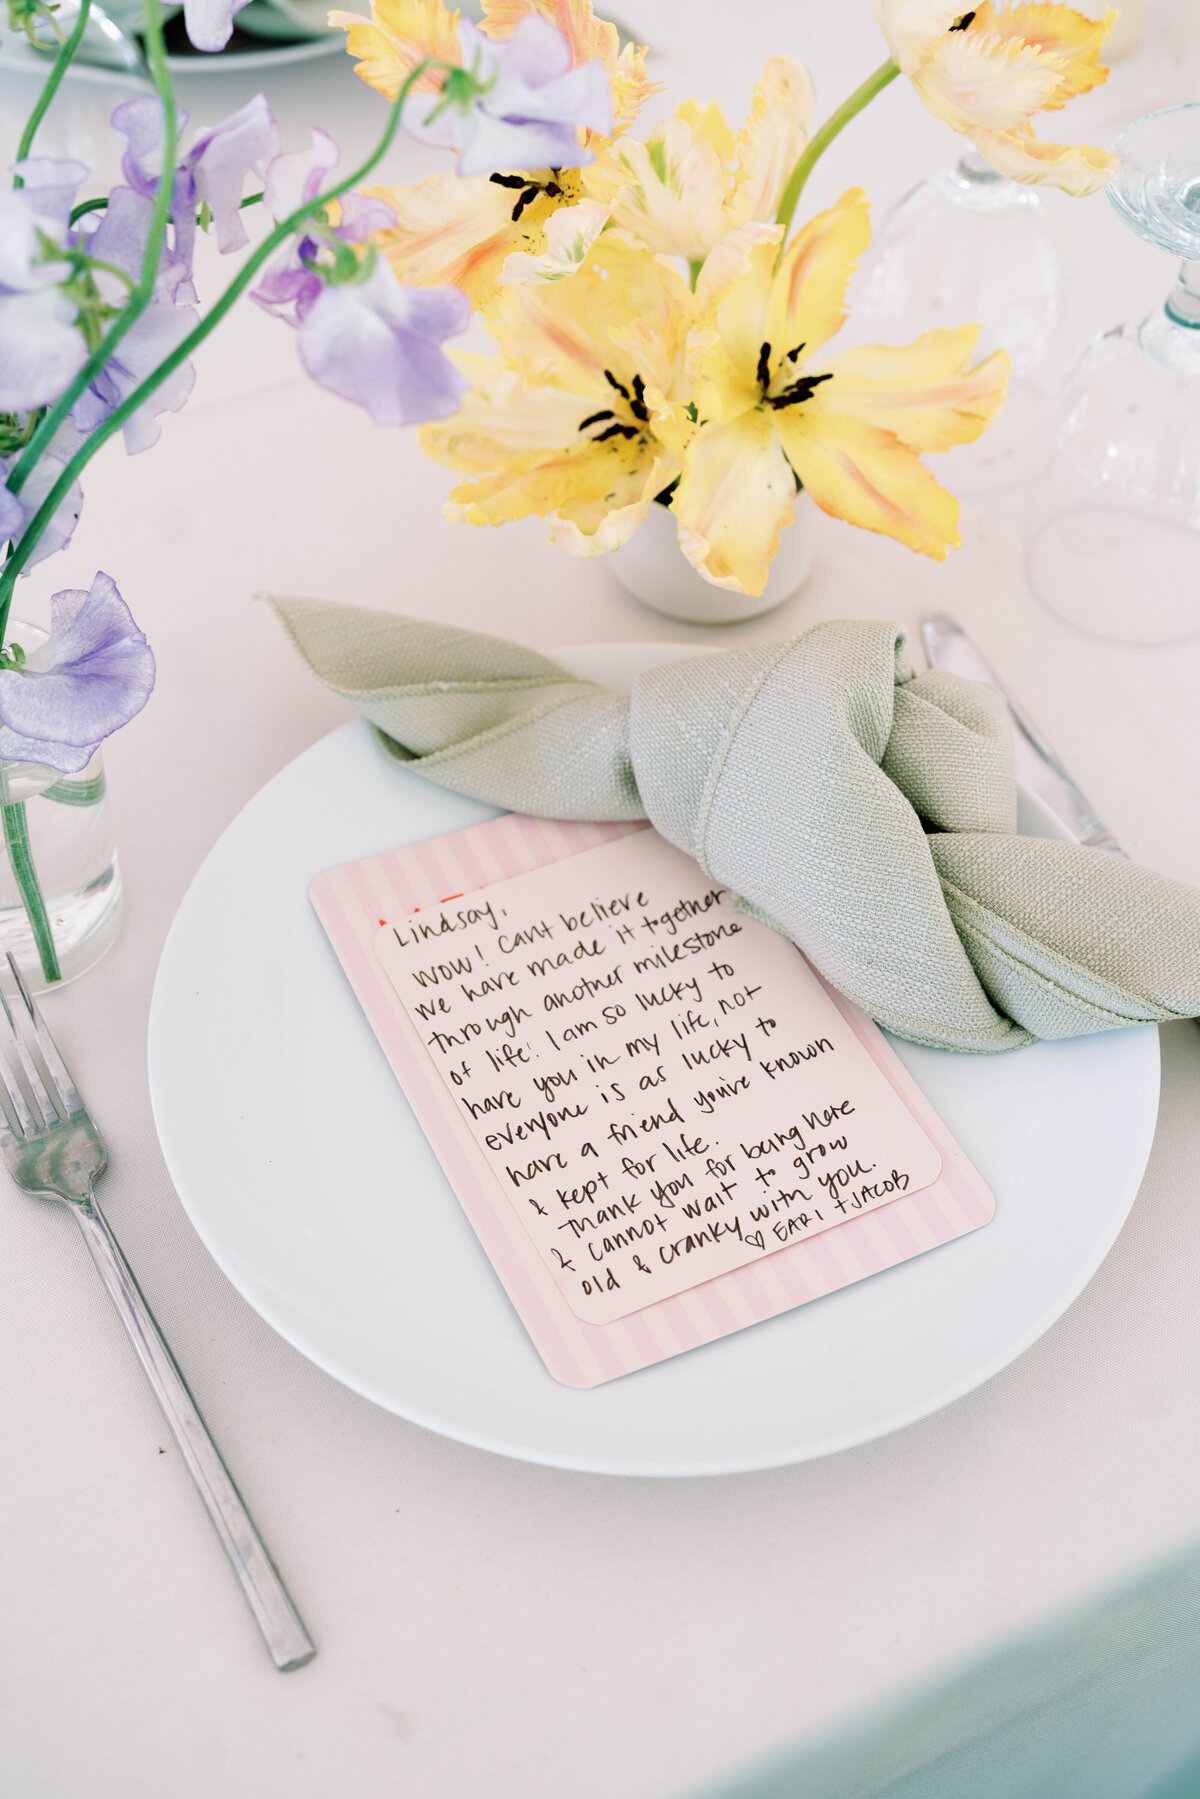 Lindsay,
WOW! Cant believe
we have made it together
through another milestone
of life! I am so lucky to
have you in my life, not
everyone is as lucky to
have a friend you've known
& kept for life.
Thank you for being here
& cannot wait to grow
old & cranky with you.
♡ EARI + JACOB